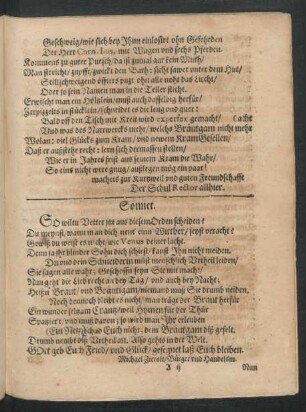 Geschweig / wie sich bey Ihm einlosirt ohn Gefehrden
Der Herr Cornelius, mit Wagen und sechs Pferden.
Kommens zu guter Putsch / da ist zumal gar kein Muth /
Man streicht / zupfft / zwickt den Bart: sieht sawer unter dem Hut /
Stillschweigend öffters putzt ohn alle noht das Liecht /
Oder so sein Namen man in die Teller sticht.
Erwischt man ein Höltzlein / muß auch dasselbig herfür /
Zerspitzelts in stücklein / schneidet es die leng und quer:
Bald auff den Tisch mit Kreit wird exzerforx gemacht /
Und was des Narrwercks mehr / welchs Bräutgam nicht mehr acht
Wolan: viel Glücks zum Kram / und dewem Kram Gesellen:
Daß er außstehe recht: lern sich dermassen stellen /
Wie er in Jahres frist auß seinem Kram die Wahr /
So eins nicht were gnug / außlegen mög ein paar!
machets zur Kurtzweil und guten Freundschafft
Der Schul Rector allhier.
Sonnet.
SO wiln Vetter jtzt aus diesem Orden scheiden:
Du meynst / wann man dich nennt einn Wittber / seyst veracht:
Gewiß du weist es nicht / wie Venus deiner lacht.
Denn ja ihr blinder Sohn dich schiest / kanst Ihn nicht meiden.
Du und dein Schneiderin müst menschlich Urtheil leiden /
Sie sagen alle wahr: Geschossen seyn Sie mit macht /
Nun geht die Lieb recht an bey Tag / und auch bey Nacht.
Heist Braut / und Bräutigam / niemand muß Sie drumb neiden /
Noch dennoch bleibt es nicht / man trägt der Braut herfür
Ein wunder seltzam Crantz / weil Hymen für der Thür
Spaziert / und muß davon: so wird man Ihr erleuben
(Ein Reiß) schad Euch nicht: dem Bräutgam diß gefelt,
Demnt nembt diß Vertheil an. Also gehts in der Welt.
GOtt geb Euch Fried / und Glück / gesegnet laß Euch bleiben.
Michael Ziervle / Bürger und Handelsm.
A ij
Nun